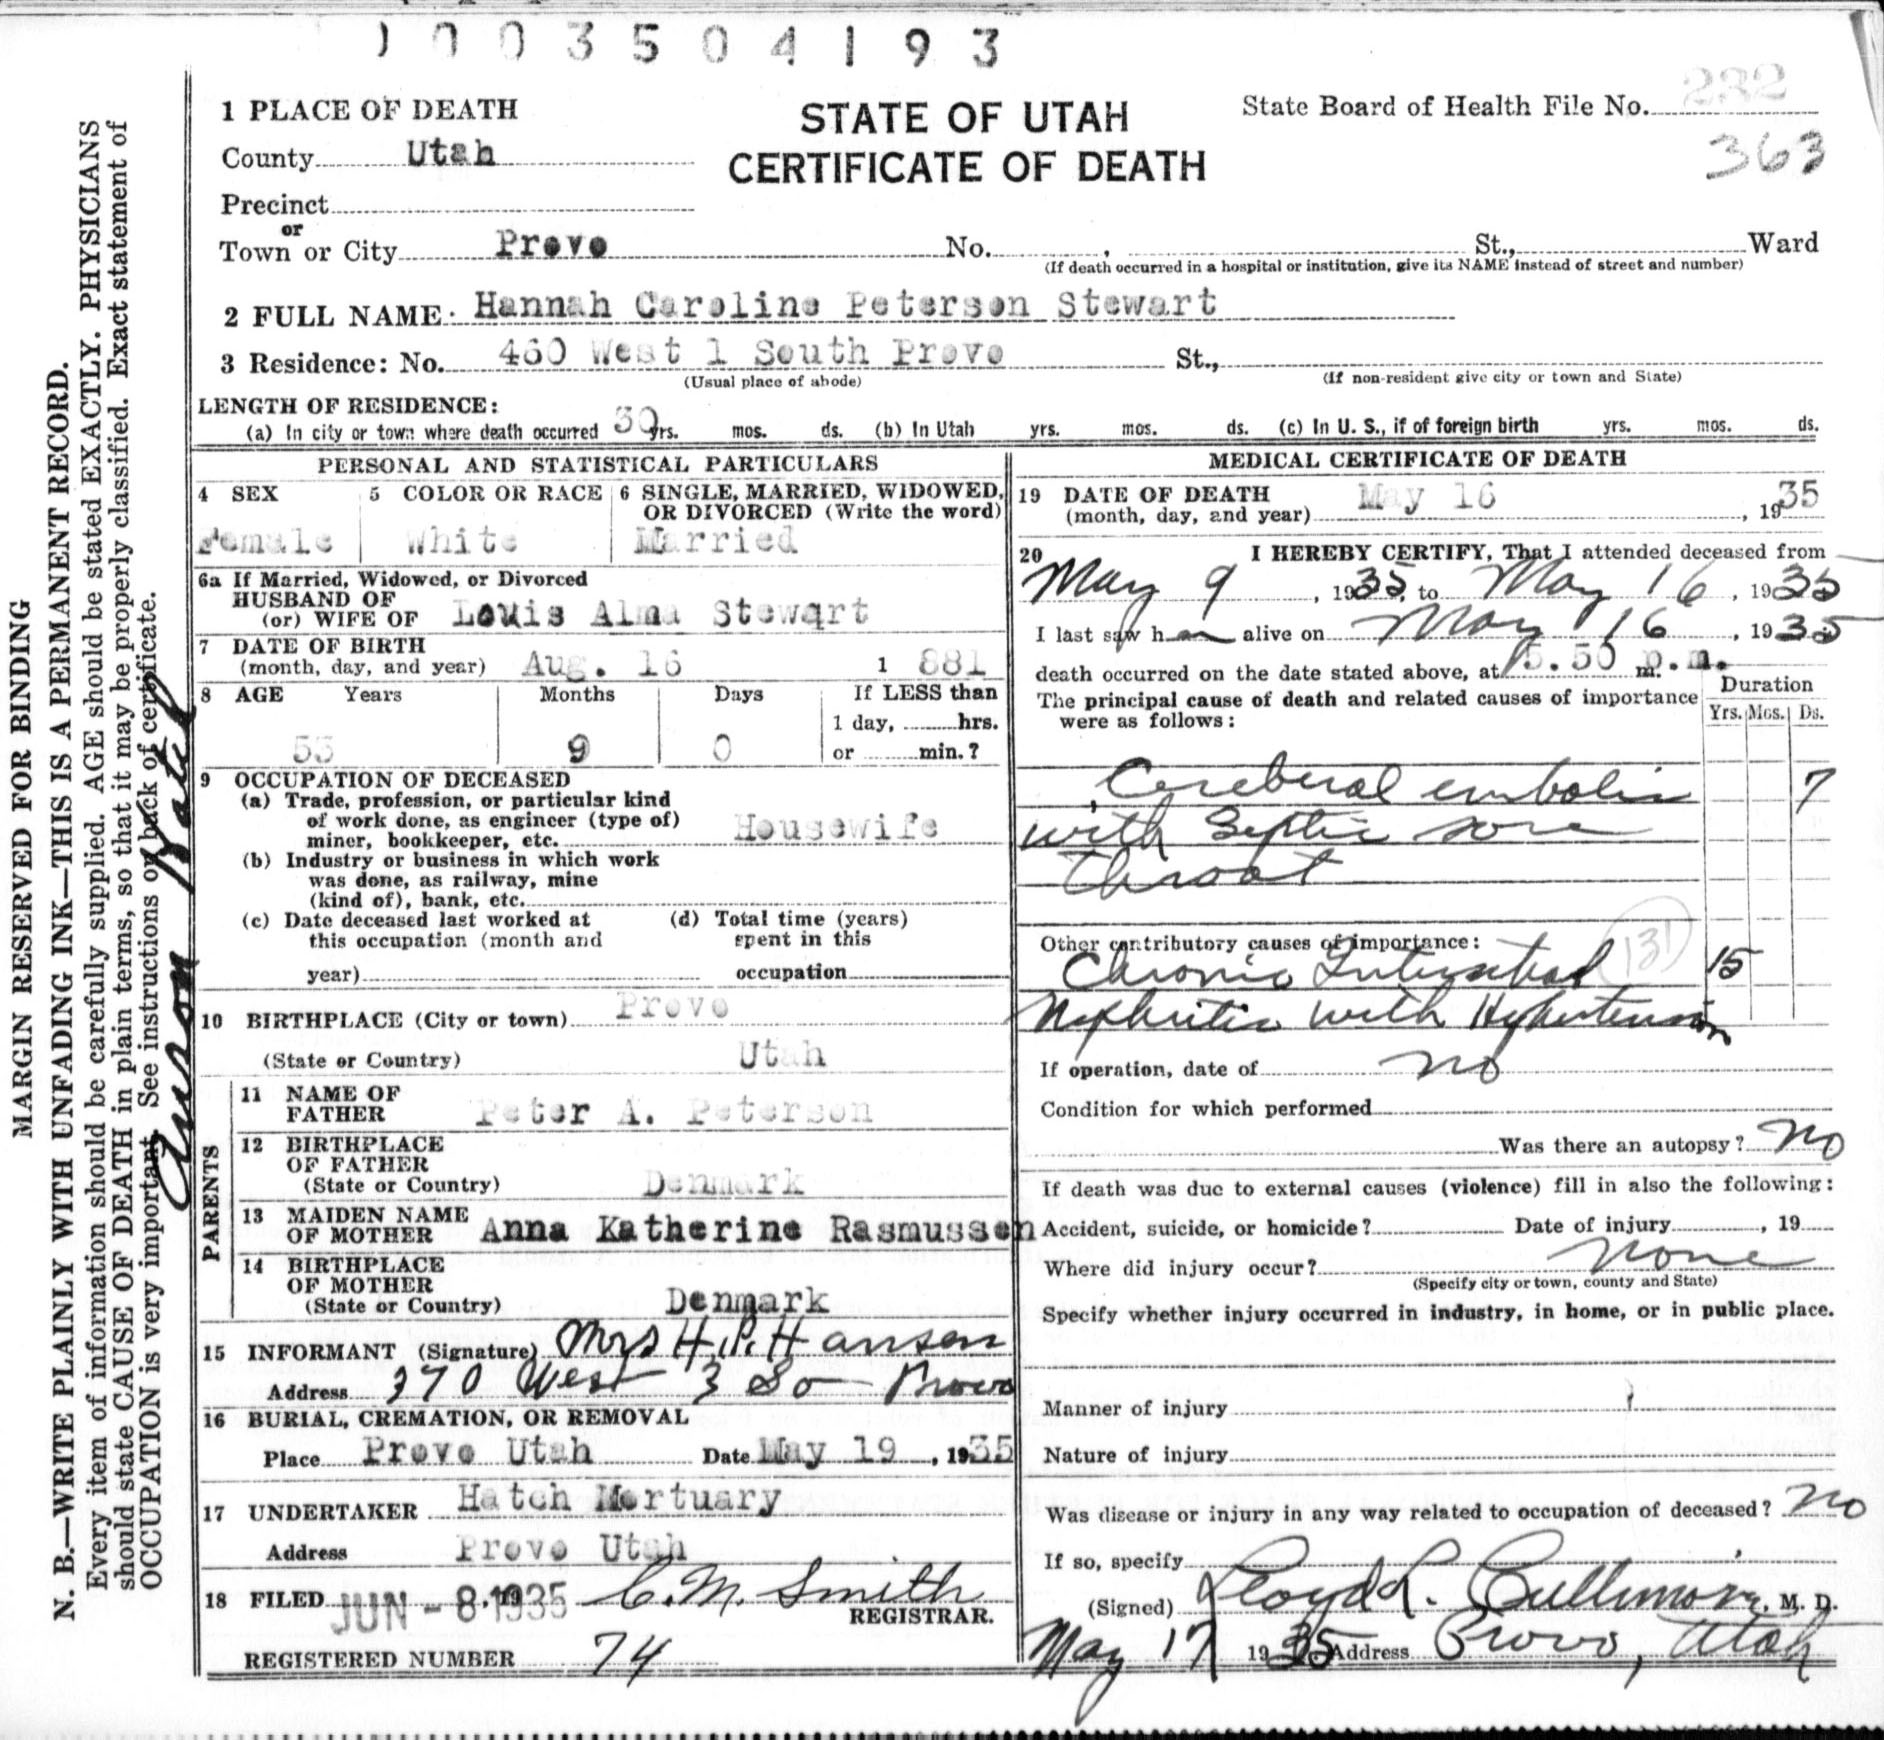 1003504193
1 PLACE OF DEATH
STATE OF UTAH
CERTIFICATE OF DEATH
State Board of Health File No. 282
363
County Utah
Precinct
or
Town or City Provo No. , St., Ward
(If death occurred in a hospital or institution, give its NAME instead of street and number)
2 FULL NAME: Hannah Caroline Peterson Stewart
3 Residence: No. 460 West 1 South Provo St.,
(Usual place of abode) (If non-resident give city or town and State)
LENGTH OF RESIDENCE:
(a) In city or town where death occurred 30 yrs. mos. ds. (b) In Utah yrs. mos. ds. (c) In U. S., if of foreign birth yrs. mos. ds.
PERSONAL AND STATISTICAL PARTICULARS
4 SEX 5 COLOR OR RACE 6 SINGLE, MARRIED, WIDOWED,
OR DIVORCED (Write the word)
Female White Married
6a If Married, Widowed, or Divorced
HUSBAND OF
(or) WIFE OF Louis Alma Stewart
7 DATE OF BIRTH
(month, day, and year) Aug. 16 1 881
8 AGE Years Months Days If LESS than
1 day, hrs.
53 9 0 or min.?
9 OCCUPATION OF DECEASED
(a) Trade, profession, or particular kind
of work done, as engineer (type of)
miner, bookkeeper, etc. Housewife
(b) Industry or business in which work
was done, as railway, mine
(kind of), bank, etc.
(c) Date deceased last worked at (d) Total time (years)
this occupation (month and spent in this
year) occupation
10 BIRTHPLACE (City or town) Provo
(State or Country) Utah
PARENTS
11 NAME OF
FATHER Peter A. Peterson
12 BIRTHPLACE
OF FATHER
(State or Country) Denmark
13 MAIDEN NAME
OF MOTHER Anna Katherine Rasmussen
14 BIRTHPLACE
OF MOTHER
(State or Country) Denmark
15 INFORMANT (Signature) Mrs H. P. Hansen
Address 370 West 3 So Provo
16 BURIAL, CREMATION, OR REMOVAL
Place Provo Utah Date May 19, 1935
17 UNDERTAKER Hatch Mortuary
Address Provo Utah
18 FILED JUN - 8 1935 , 19 C. M. Smith
REGISTRAR.
REGISTERED NUMBER 74
MEDICAL CERTIFICATE OF DEATH
19 DATE OF DEATH
(month, day, and year) May 16 , 1935
20 I HEREBY CERTIFY, That I attended deceased from
May 9 , 1935, to May 16 , 1935
I last saw her alive on May 16 , 1935
death occurred on the date stated above, at 5.50 p.m. m.
The principal cause of death and related causes of importance
were as follows:
Duration
Yrs. Mos. Ds.
Cerebral embolis 7
with Septic sore
throat
Other contributory causes of importance: (131)
Chronic Interstitial 15
Nephritis with Hypertension
If operation, date of no
Condition for which performed
Was there an autopsy? no
If death was due to external causes (violence) fill in also the following:
Accident, suicide, or homicide? Date of injury , 19
Where did injury occur? none
(Specify city or town, county and State)
Specify whether injury occurred in industry, in home, or in public place.
Manner of injury
Nature of injury
Was disease or injury in any way related to occupation of deceased? no
If so, specify
(Signed) Lloyd L. Cullimore, M. D.
May 17 1935 Address Provo, Utah
MARGIN RESERVED FOR BINDING
N. B.—WRITE PLAINLY WITH UNFADING INK—THIS IS A PERMANENT RECORD.
Every item of information should be carefully supplied. AGE should be stated EXACTLY. PHYSICIANS
should state CAUSE OF DEATH in plain terms, so that it may be properly classified. Exact statement of
OCCUPATION is very important. See instructions on back of certificate.
Anson Hatch